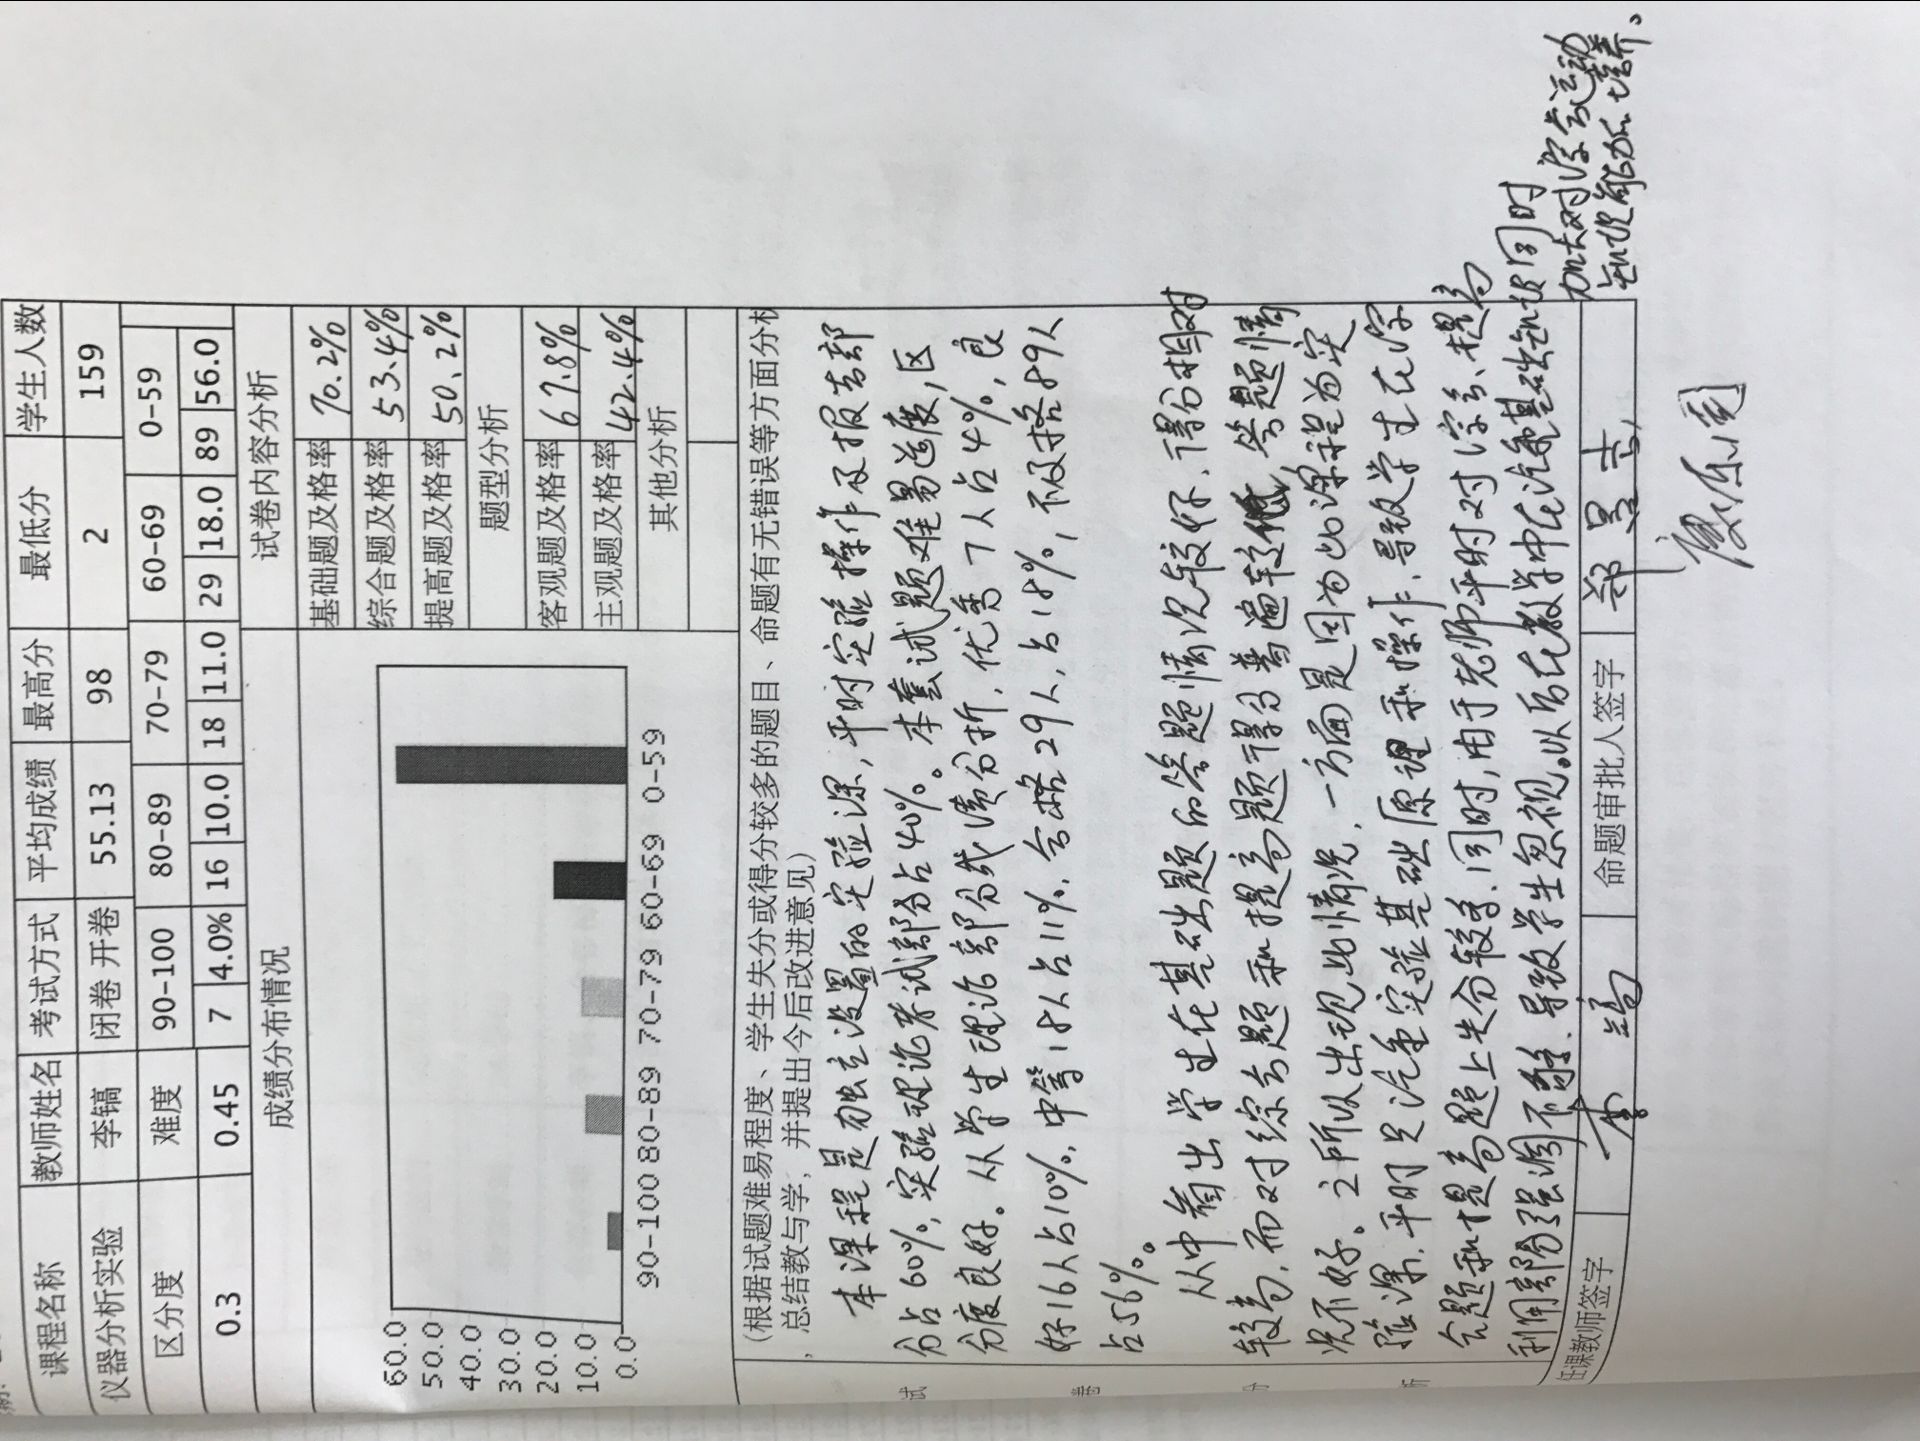 课程名称 教师姓名 考试方式 平均成绩 最高分 最低分 学生人数
仪器分析实验 李镐 闭卷 开卷 55.13 98 2 159
区分度 难度 90-100 80-89 70-79 60-69 0-59
0.3 0.45 7 4.0% 16 10.0 18 11.0 29 18.0 89 56.0
成绩分布情况 试卷内容分析
基础题及格率 70.2%
综合题及格率 53.4%
提高题及格率 50.2%
题型分析
客观题及格率 67.8%
主观题及格率 42.4%
其他分析
60.0
50.0
40.0
30.0
20.0
10.0
0.0
90-100 80-89 70-79 60-69 0-59
(根据试题难易程度、学生失分或得分较多的题目、命题有无错误等方面分析
，总结教与学，并提出今后改进意见)
本课程是独立设置的实验课，平时实验操作及报告部
分占60%，实验理论考试部分占40%。本套试题难易适度，区
分度良好。从学生理论部分成绩分析，优秀7人占4%，良
好16人占10%，中等18人占11%，合格29人，占18%，不及格89人
占56%。
从中看出学生在基础题的答题情况较好，得分相对
较高，而对综合题和提高题得分普遍较低，答题情
况不好。之所以出现此情况，一方面是因为此课程为实
验课，平时只注重实验基础原理和操作，导致学生在综
合题和提高题上失分较多，同时，由于老师平时对综合、提高
利用部分强调不够，导致学生忽视。以后在教学中在注重基础知识同时
加大对综合运动
知识能力的培养。
试
卷
分
析
任课教师签字 李镐 命题审批人签字 郑昱吉